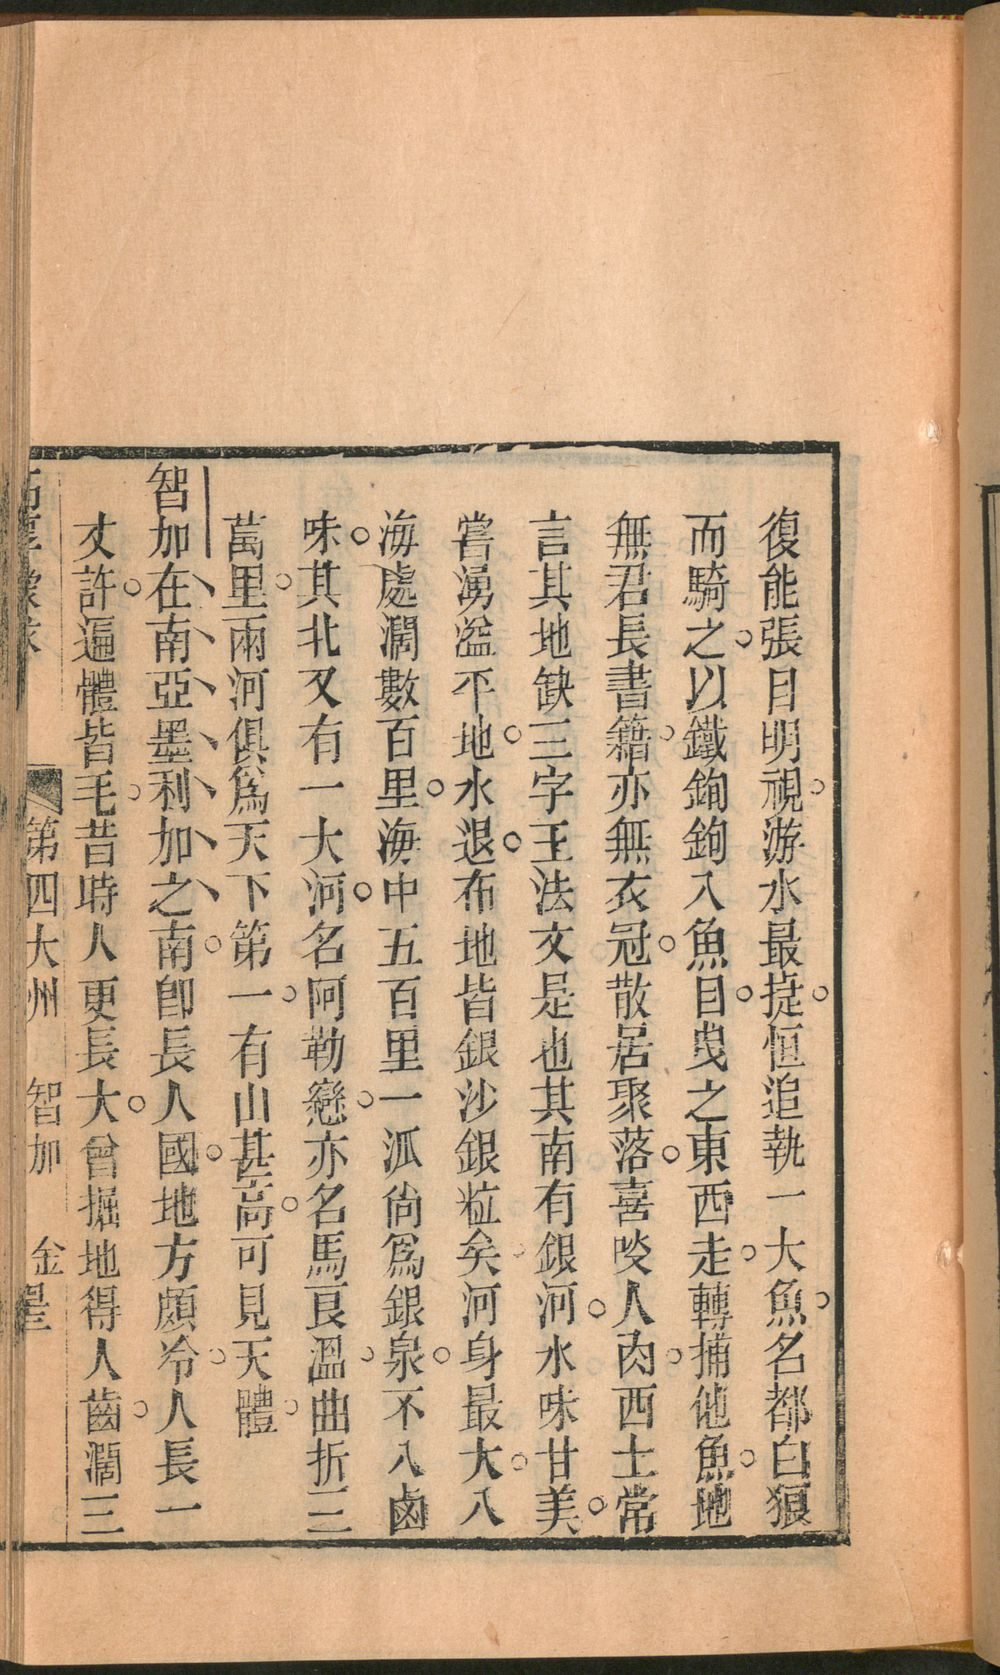 復能張目明視游水最㨗恒追執一大魚名都白狼
而騎之以鐵鉤鉤入魚目曳之東西走轉捕他魚地
無君長書籍亦無衣冠散居聚落喜啖人肉西士常
言其地缺三字王法文是也其南有銀河水味甘美
嘗湧溢平地水退布地皆銀沙銀粒矣河身最大入
海處濶數百里海中五百里一泒尚爲銀泉不入鹵
味其北又有一大河名阿勒戀亦名馬良溫曲折三
萬里兩河俱爲天下第一有山甚高可見天體
智加在南亞墨利加之南卽長人國地方頗冷人長一
丈許遍體皆毛昔時人更長大曾掘地得人齒濶三
第四大州 智加 金星